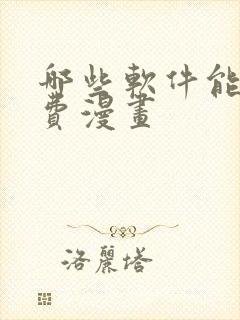 哪些軟件能
費漫畫
洛麗塔